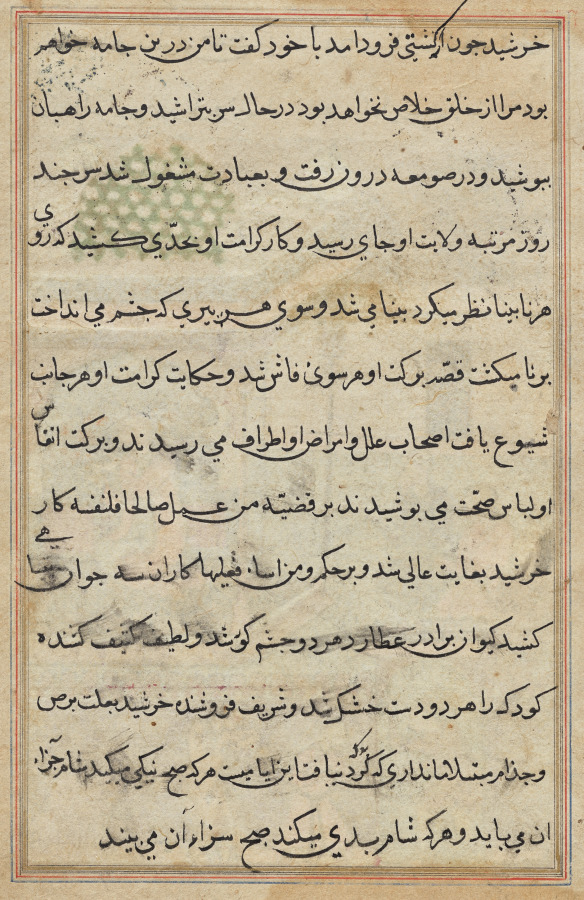 خرشید جون از کشتی فرود امد با خود کفت تا من درین جامه خواهم
بود مرا از خلق خلاص نخواهد بود در حال سر بتراشید و جامه راهبان
ببوشید و در صومعه درون رفت و بعبادت مشغول شد سر جند
روز مرتبه ولایت او جای رسید و کار کرامت او بحدّی کشید که روی
هر نابینا نظر میکرد بینا می شد و سوی هر بیری که جشم می انداخت
برنا میکشت قصّه برکت او هر سوی فاش شد و حکایت کرامت او هر جانب
شیوع یافت اصحاب علل وامراض او اطراف می رسیدند و برکت انفاس
او لباس صحّت می بوشیدند بر قضیّه من عمل صالحا فلنفسه کار
خرشید بغایت عالی شد و بر حکم ومن اساء فعلیها کاران سه جوان
کشید کیوان برادر عطارد هر دو جشم کور شد و لطیف کثیف کننده
کودک را هر دو دست خشک شد و شریف فروشنده خرشید بعلت برص
و جذام مبتلا ماند اری که کرد که نیافت این ایامیست هر که صبح نیکی میکند شام جزاء
ان می یابد و هر که شام بدی میکند صبح سزاء آن می بیند